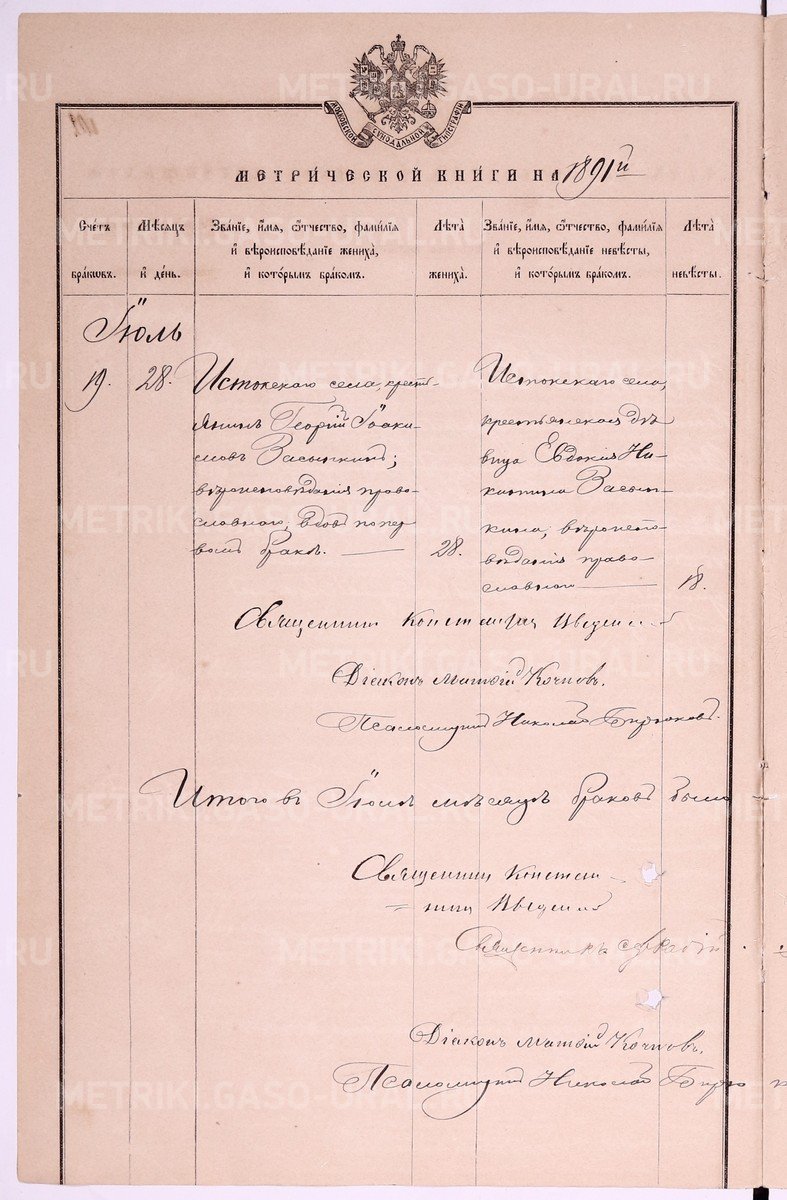 МОСКОВСКОЙ СѴНОДАЛЬНОЙ ТИПОГРАФІИ
МЕТРИ́ЧЕСКОЙ КНИ́ГИ НА 1891й
Сче́тъ бра́кѡвъ.
Мѣ́сѧцъ и де́нь.
Зва́нїе, и́мѧ, ѻ́тчество, фами́лїѧ
и вѣроисповѣ́данїе жениха̀,
и кото́рымъ бра́комъ.
Лѣта̀ жениха̀.
Зва́нїе, и́мѧ, ѻ́тчество, фами́лїѧ
и вѣроисповѣ́данїе невѣ́сты,
и кото́рымъ бра́комъ.
Лѣта̀ невѣ́сты.
Іюль
19.
28.
Истокскаго села, кресть-
янинъ Георгій Іоаки-
мовъ Засыпкинъ;
вѣроисповѣданія право-
славнаго, вдовъ по пер
вомъ бракѣ.
28.
Истокскаго села,
крестьянская дѣ
вица Евдокія Ни-
китина Засып-
кина; вѣроиспо-
вѣданія право-
славнаго
18.
Священникъ Константинъ Введенскій
Діаконъ Матѳій Кочневъ.
Псаломщикъ Николай Бирюковъ.
Итого въ Іюлѣ мѣсяцѣ браковъ было
Священникъ Констан-
= тинъ Введенскій
Священникъ
Діаконъ Матѳій Кочневъ.
Псаломщикъ Николай Бирю к
METRIKI.GASO-URAL.RU